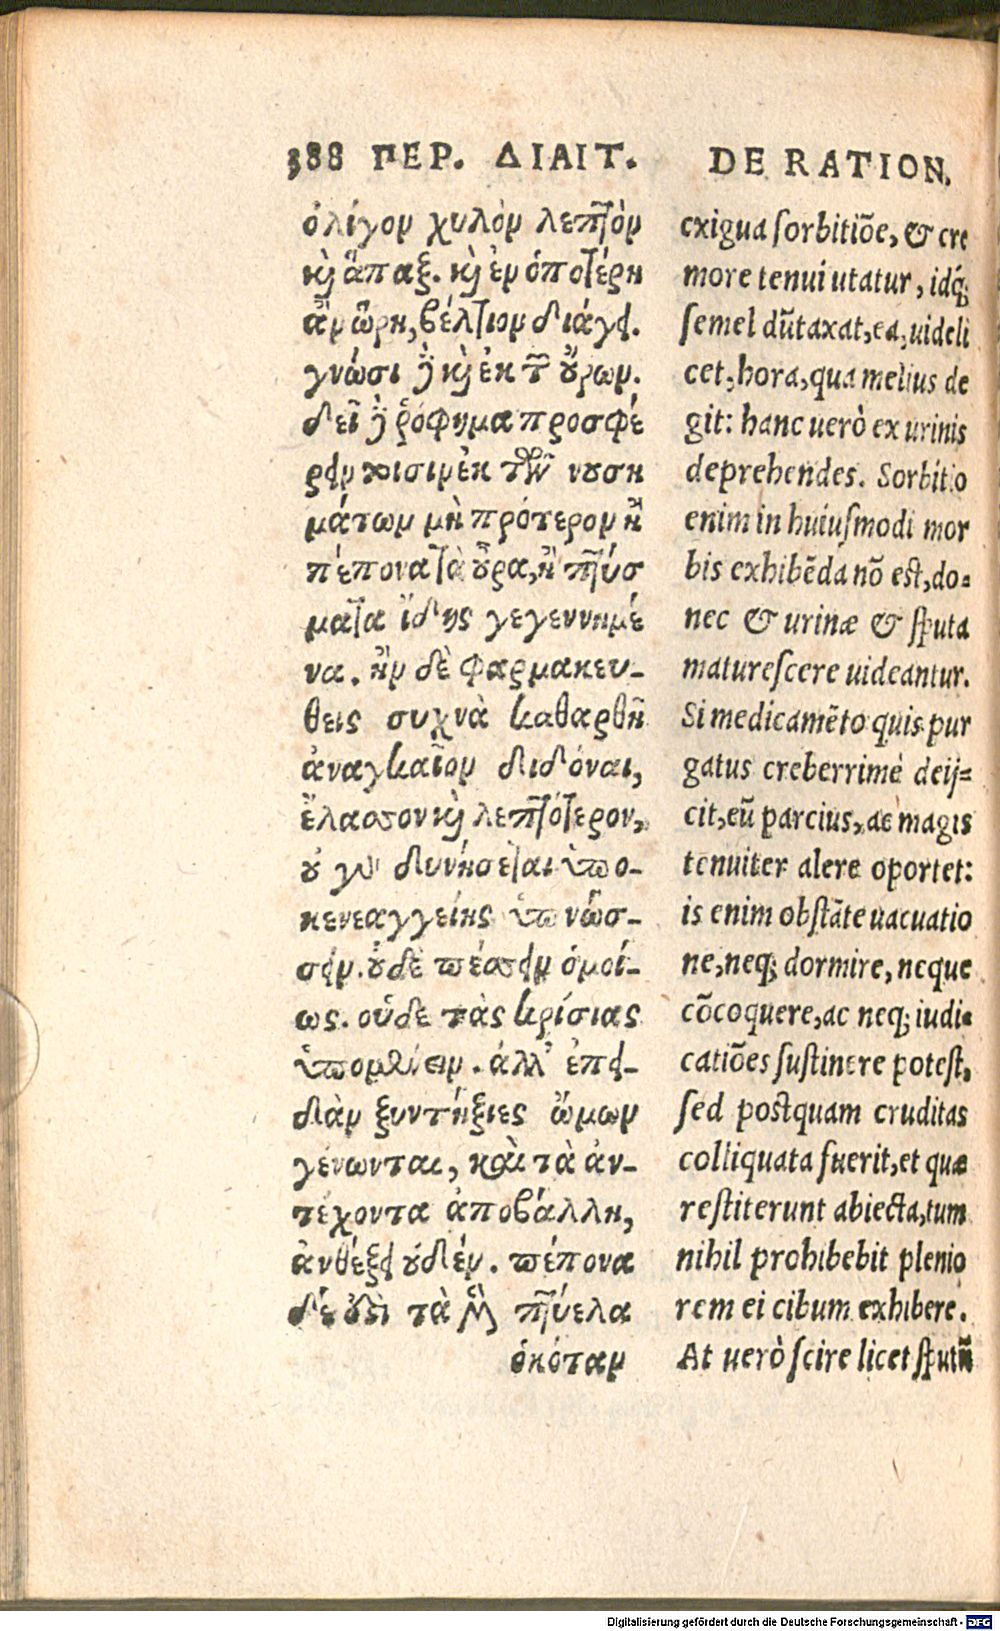 388 ΠΕΡ. ΔΙΑΙΤ.
ὀλίγον χυλὸν λεπτὸν
καὶ ἅπαξ. καὶ ἐν ὁποτέρη
ἂν ὥρη, βέλτιον διάγει.
γνώσι δὲ καὶ ἐκ τῶν οὔρων.
δεῖ δὲ ῥόφημα προσφέ
ρειν τοῖσιν ἐκ τῶν νουση
μάτων μὴ πρότερον ἢ
πέπονα τὰ οὖρα, ἢ πτύσ
ματα ἴδης γεγεννημέ
να. ἢν δὲ φαρμακευ-
θεις συχνὰ καθαρθῆ
ἀναγκαῖον διδόναι,
ἔλασσον καὶ λεπτότερον,
οὐ γὰρ δυνήσεται ὑπο-
κενεαγγείης ὑπνώσ-
σειν. οὐδὲ πέσσειν ὁμοί-
ως. οὔδε τὰς κρίσιας
ὑπομένειν. ἀλλ' ἐπει-
δὰν ξυντήξιες ὤμων
γένωνται, καὶ τὰ ἀν-
τέχοντα ἀποβάλλη,
ἀνθέξει οὐδέν. πέπονα
δέ ἐστι τὰ μὲν πτύελα
ὁκόταν
DE RATION.
exigua sorbitiõe, & cre
more tenui utatur, idq;
semel dũtaxat, ea, uideli
cet, hora, qua melius de
git: hanc uerò ex urinis
deprehendes. Sorbitio
enim in huiusmodi mor
bis exhibẽda nõ est, do-
nec & urinæ & sputa
maturescere uideantur.
Si medicamẽto quis pur
gatus creberrimè deij-
cit, eũ parcius, ac magis
tenuiter alere oportet:
is enim obstãte uacuatio
ne, neq; dormire, neque
cõcoquere, ac neq; iudi-
catiões sustinere potest,
sed postquam cruditas
colliquata fuerit, et quæ
restiterunt abiecta, tum
nihil prohibebit plenio
rem ei cibum exhibere.
At uerò scire licet sputũ
Digitalisierung gefördert durch die Deutsche Forschungsgemeinschaft - DFG